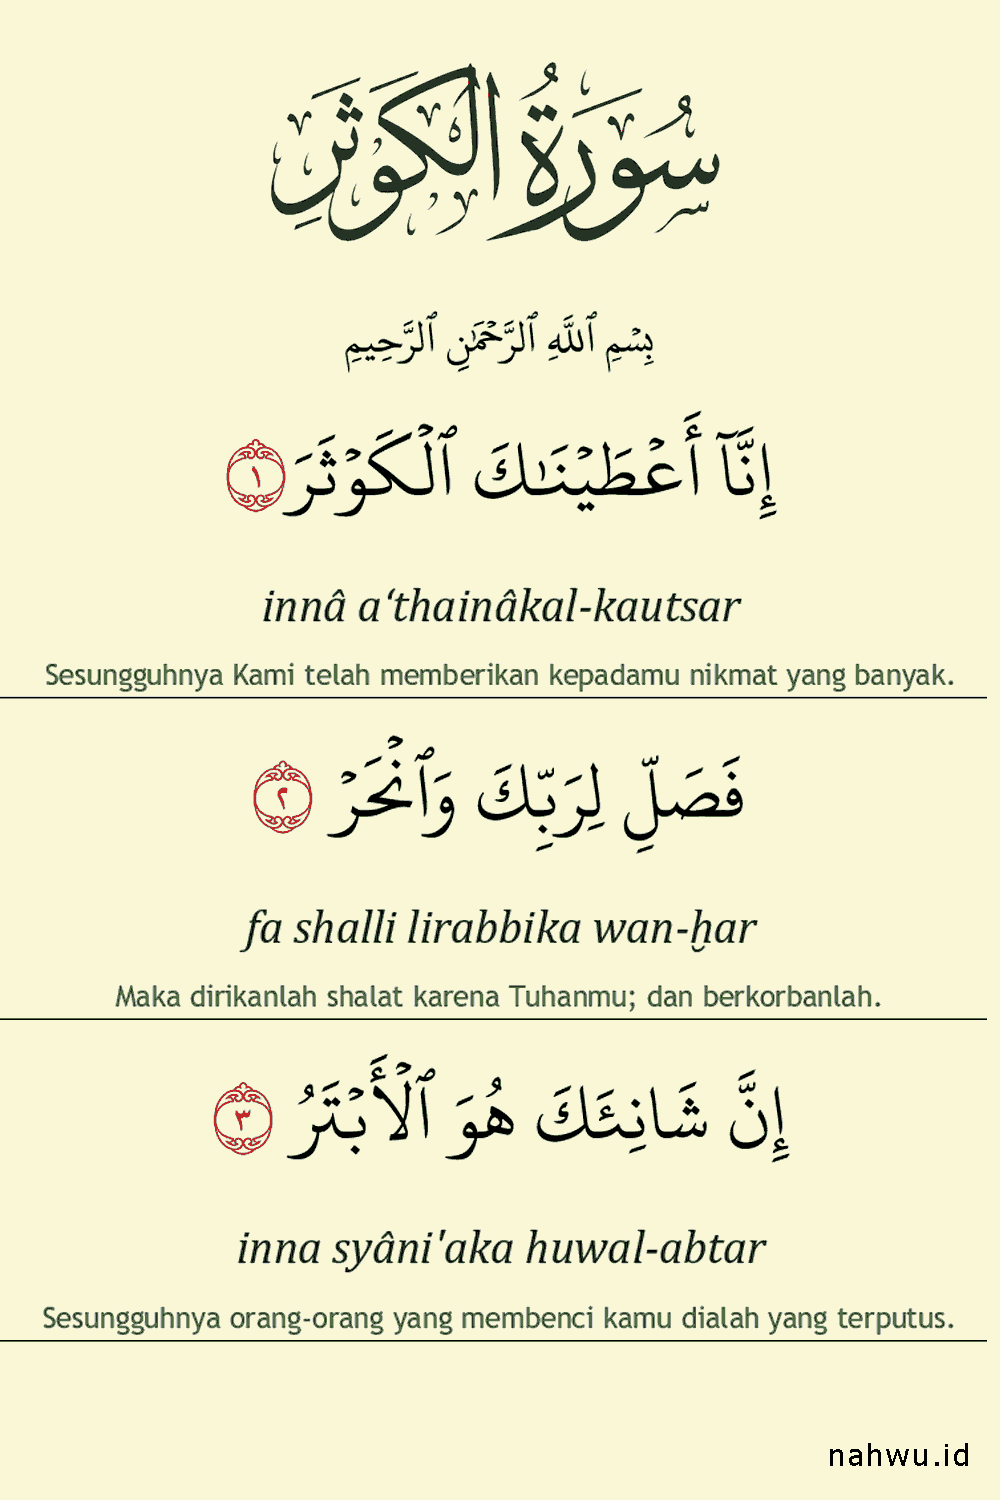 سُورَةُ الكَوۡثَرِ
بِسۡمِ ٱللَّهِ ٱلرَّحۡمَٰنِ ٱلرَّحِيمِ
إِنَّآ أَعۡطَيۡنَٰكَ ٱلۡكَوۡثَرَ ١
innâ a‘thainâkal-kautsar
Sesungguhnya Kami telah memberikan kepadamu nikmat yang banyak.
فَصَلِّ لِرَبِّكَ وَٱنۡحَرۡ ٢
fa shalli lirabbika wan-ḫar
Maka dirikanlah shalat karena Tuhanmu; dan berkorbanlah.
إِنَّ شَانِئَكَ هُوَ ٱلۡأَبۡتَرُ ٣
inna syâni'aka huwal-abtar
Sesungguhnya orang-orang yang membenci kamu dialah yang terputus.
nahwu.id